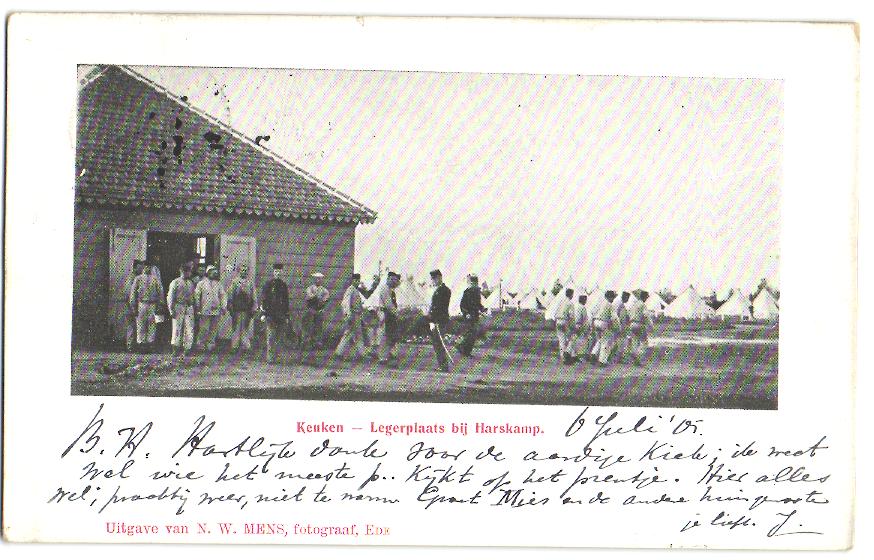 Keuken — Legerplaats bij Harskamp.
6 Juli '05.
B. H. Hartelijk dank voor de aardige Kiek; ik weet
wel wie het meeste p.. Kijkt op het prentje. Hier alles
wel; prachtig weer, niet te warm Groet Mies en de andere huisgenoote
je liefh. J.
Uitgave van N. W. MENS, fotograaf, EDE